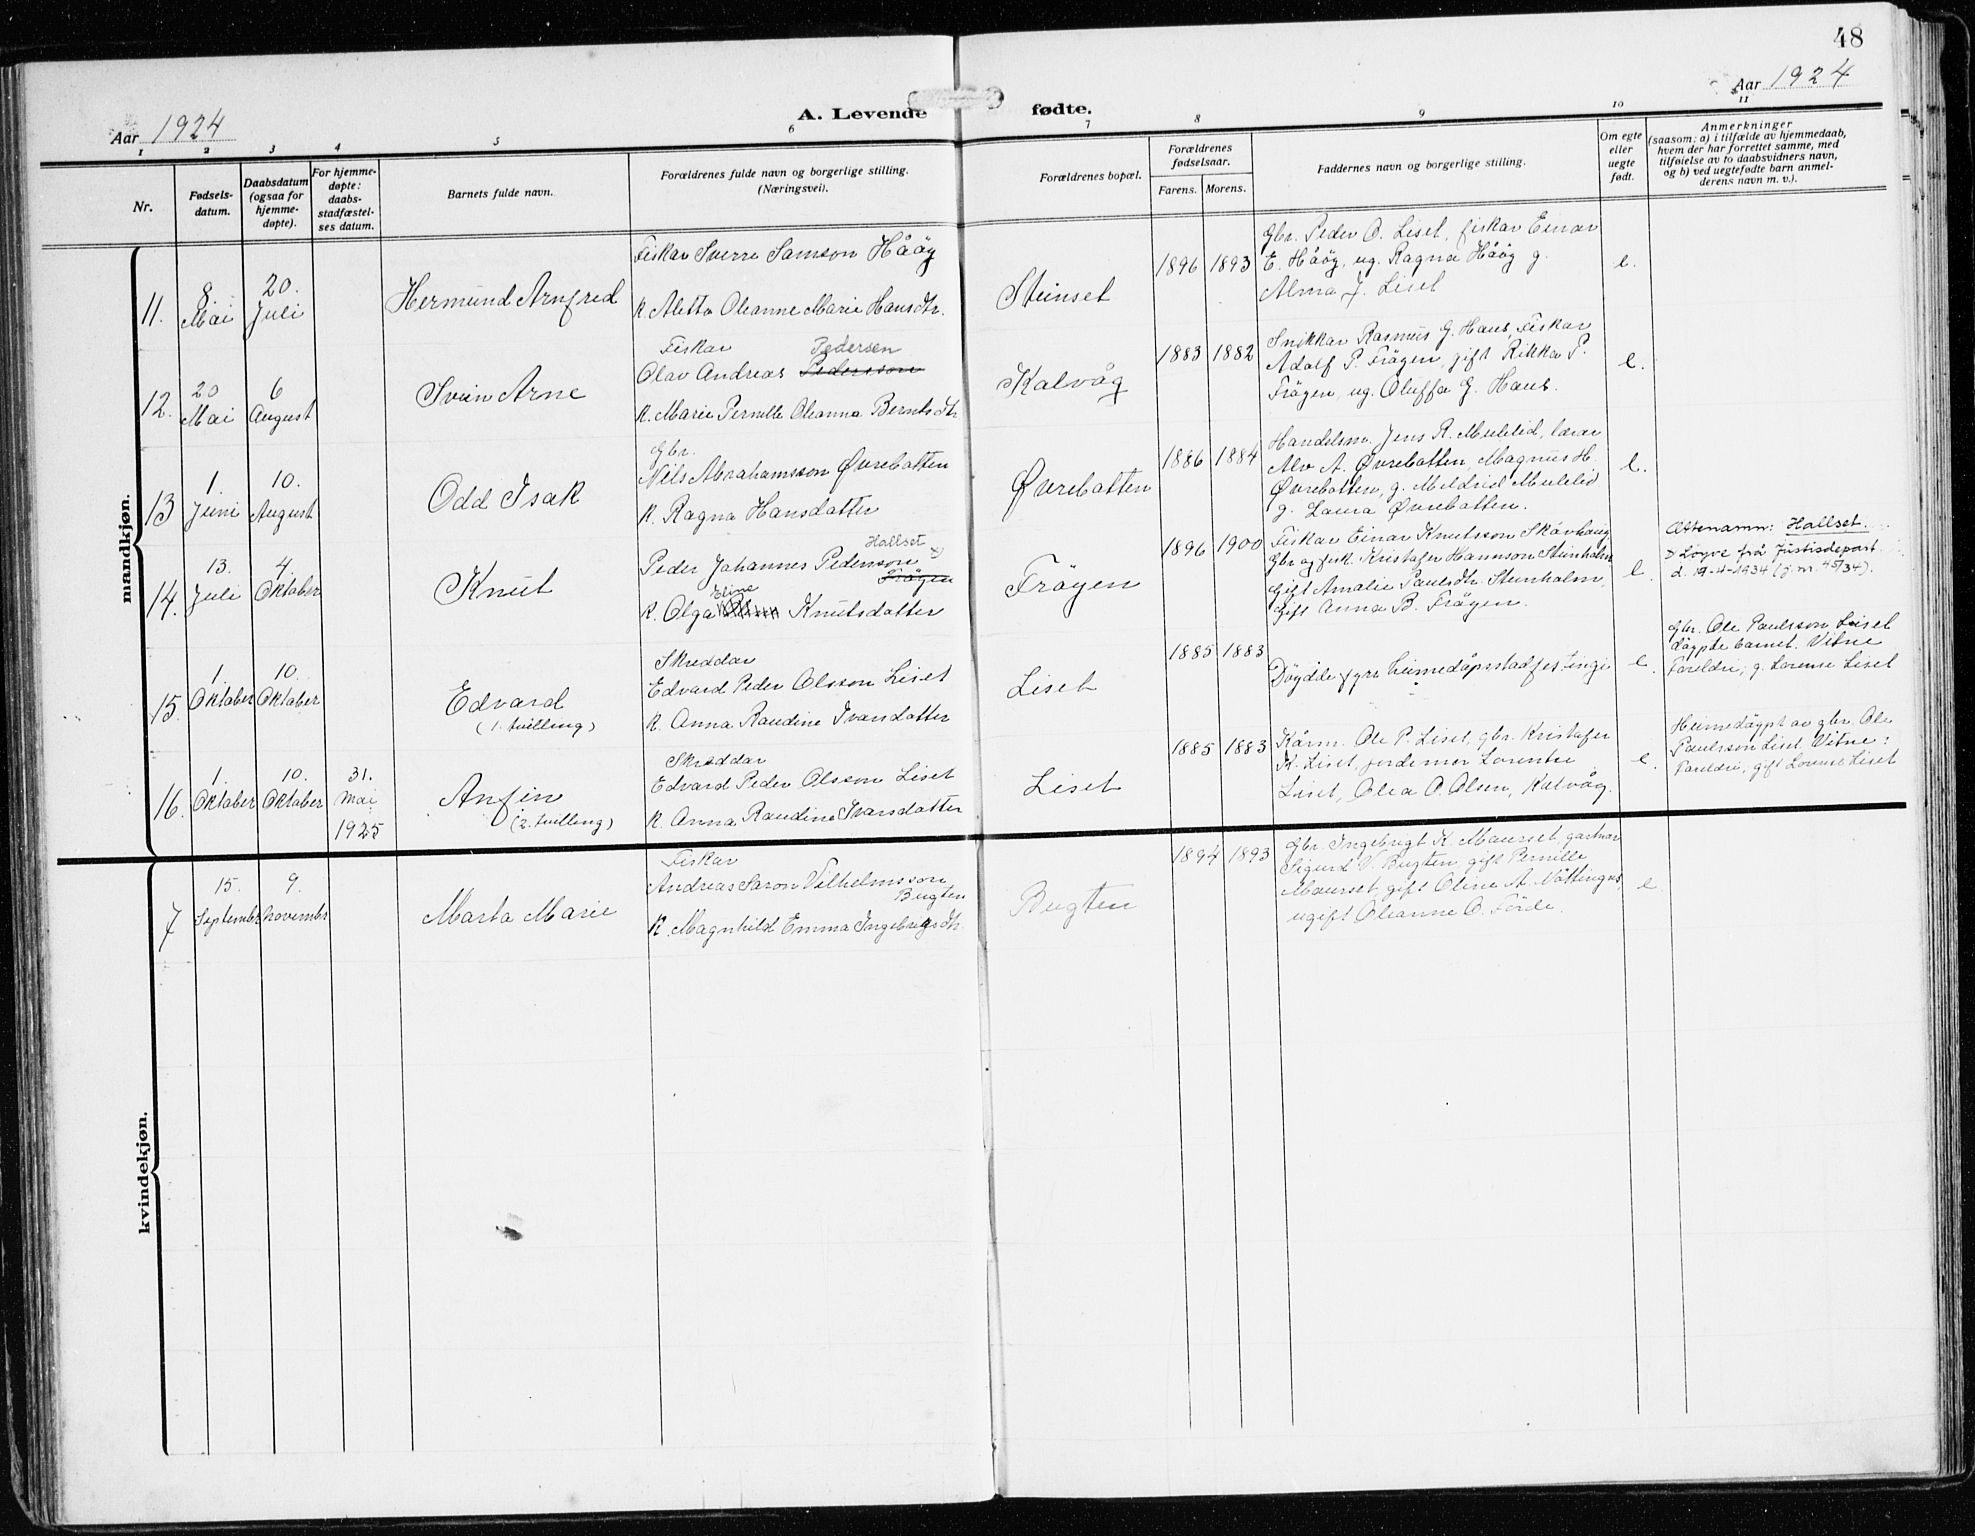 48
Aar 1924
A. Levende fødte.
Aar 1924
1 2 3 4 5 6 7 8 9 10 11
Nr.
Fødsels-
datum.
Daabsdatum
(ogsaa for
hjemme-
døpte).
For hjemme-
døpte:
daabs-
stadfæstel-
ses datum.
Barnets fulde navn.
Forældrenes fulde navn og borgerlige stilling.
(Næringsvei).
Forældrenes bopæl.
Forældrenes
fødselsaar.
Farens. Morens.
Faddernes navn og borgerlige stilling.
Om egte
eller
uegte
født.
Anmerkninger
(saasom: a) i tilfælde av hjemmedaab,
hvem der har forrettet samme, med
tilføielse av to daabsvidners navn,
og b) ved uegtefødte barn anmel-
derens navn m. v.).
mandkjøn.
11.
8.
Mai
20.
Juli
Hermund Arnfred
Fiskar Sverre Samson Håöy
K. Aletta Oleanne Marie Hansdtr.
Steinset
1896 1893
Gbr. Peder O. Liset, fiskar Einar
E. Håöy, ug. Ragna Håöy g.
Alma J. Liset
e.
12.
20
Mai
6
August
Svein Arne
Fiskar Pedersen
Olav Andreas Pedersson
K. Marie Pernille Oleanna Berntsdtr.
Kalvåg
1883 1882
Snikkar Rasmus G. Haus, Fiskar
Adolf P. Fröyen, gift Rikka P.
Fröyen, ug. Oluffa G. Haus.
e.
13
1.
Juni
10.
August
Odd Isak
Gbr.
Nils Abrahamsson Øvrebotten
K. Ragna Hansdatter
Øvrebotten
1886 1884
Handelsm. Jens R. Muleli­d, lærar
Alv A. Øvrebotten, Magnus H.
Øvrebotten, g. Mildrid Mulelid
g. Laura Øvrebotten.
e.
14.
13.
Juli
4.
Oktober
Knut
Hallset
Peder Johannes Pedersson x)
Fröyen
Eline
K. Olga Knutsdatter
Fröyen
1896 1900
Fiskar Einar Knutsson Skårhaug
Gbr og fisk. Kristafer Hannson Steinholm
gift Amalie Paulsdtr. Steinholm,
gift Anna B. Fröyen.
e.
Ættenamn: Hallset.
x) Løyve frå Justisdepart.
d. 19-4-1934 (j. nr. 45/34).
15.
1.
Oktober
10.
Oktober
Edvard
(1. tvilling)
Skreddar
Edvard Peder Olsson Liset
K. Anna Raudine Ivarsdatter
Liset
1885 1883
Döydde fyre heimedåpsstadfestingi
e.
Gbr. Ole Paulsson Liset
döypte barnet. Vitne
Foreldri, g. Lorense Liset
16.
1.
Oktober
10.
Oktober
31.
Mai
1925
Anfin
(2. tvilling)
Skreddar
Edvard Peder Olsson Liset
K. Anna Raudine Ivarsdatter
Liset
1885 1883
Kårm. Ole P. Liset, gbr. Kristafer
K. Liset, jordemor Lorentse
Liset, Olea O. Olsen, Kalvåg.
e.
Heimedöypt av gbr. Ole
Paulsson Liset. Vitne:
Foreldri, gift Lorense Liset
kvindekjøn.
7
15.
Septembr
9.
Novembr
Marta Marie
Fiskar
Andreas Saron Vilhelmsson
Bugten
K. Magnhild Emma Ingebrigtsdtr.
Bugten
1894 1893
Gbr. Ingebrigt K. Maurset, gartnar
Sigurd V. Bugten, gift Pernille
Maurset, gift Oline A. Nöttingnes,
ugift Oleanne O. Förde.
e.